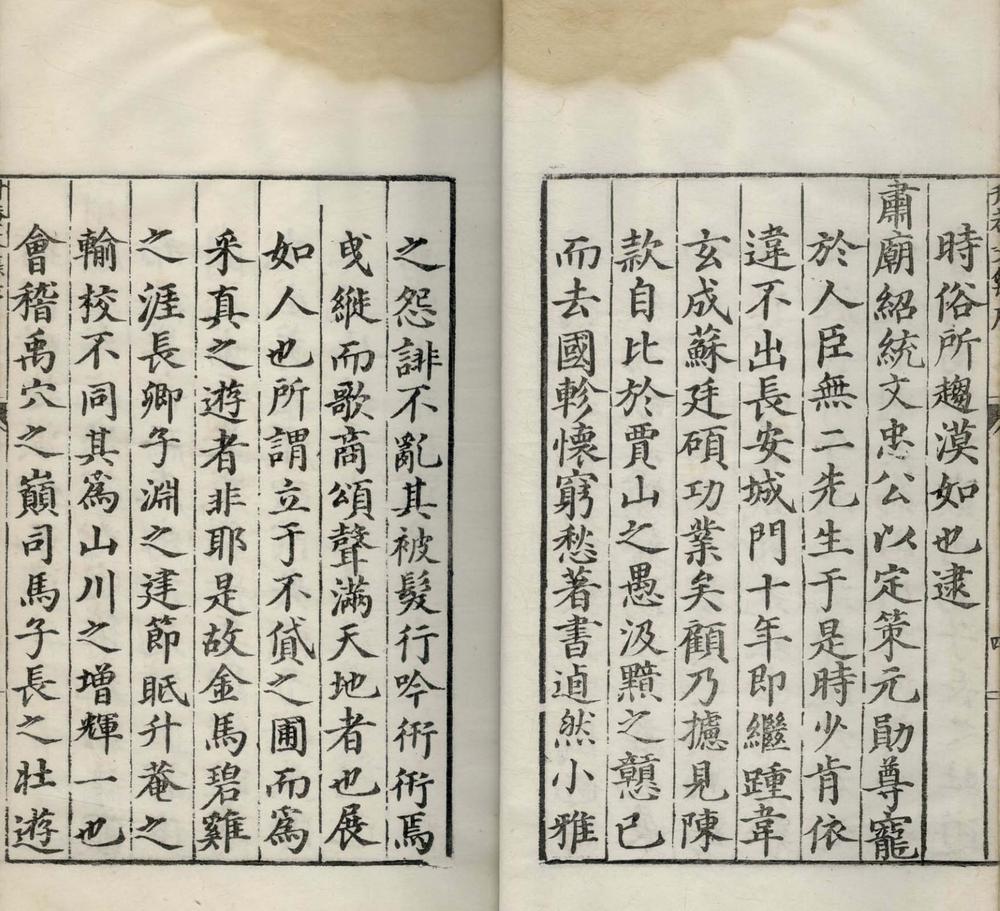 時俗所趨漠如也逮
肅廟紹統文忠公以定策元勛尊寵
於人臣無二先生于是時少肯依
違不出長安城門十年即繼踵韋
玄成蘇廷碩功業矣顧乃攄見陳
款自比於賈山之愚汲黯之戇已
而去國軫懷窮愁著書逌然小雅
之怨誹不亂其被髮行吟衎衎焉
曳縰而歌商頌聲滿天地者也展
如人也所謂立于不貸之圃而為
采真之遊者非耶是故金馬碧雞
之涯長卿子淵之建節眂升菴之
輸校不同其為山川之增輝一也
會稽禹穴之巔司馬子長之壯遊